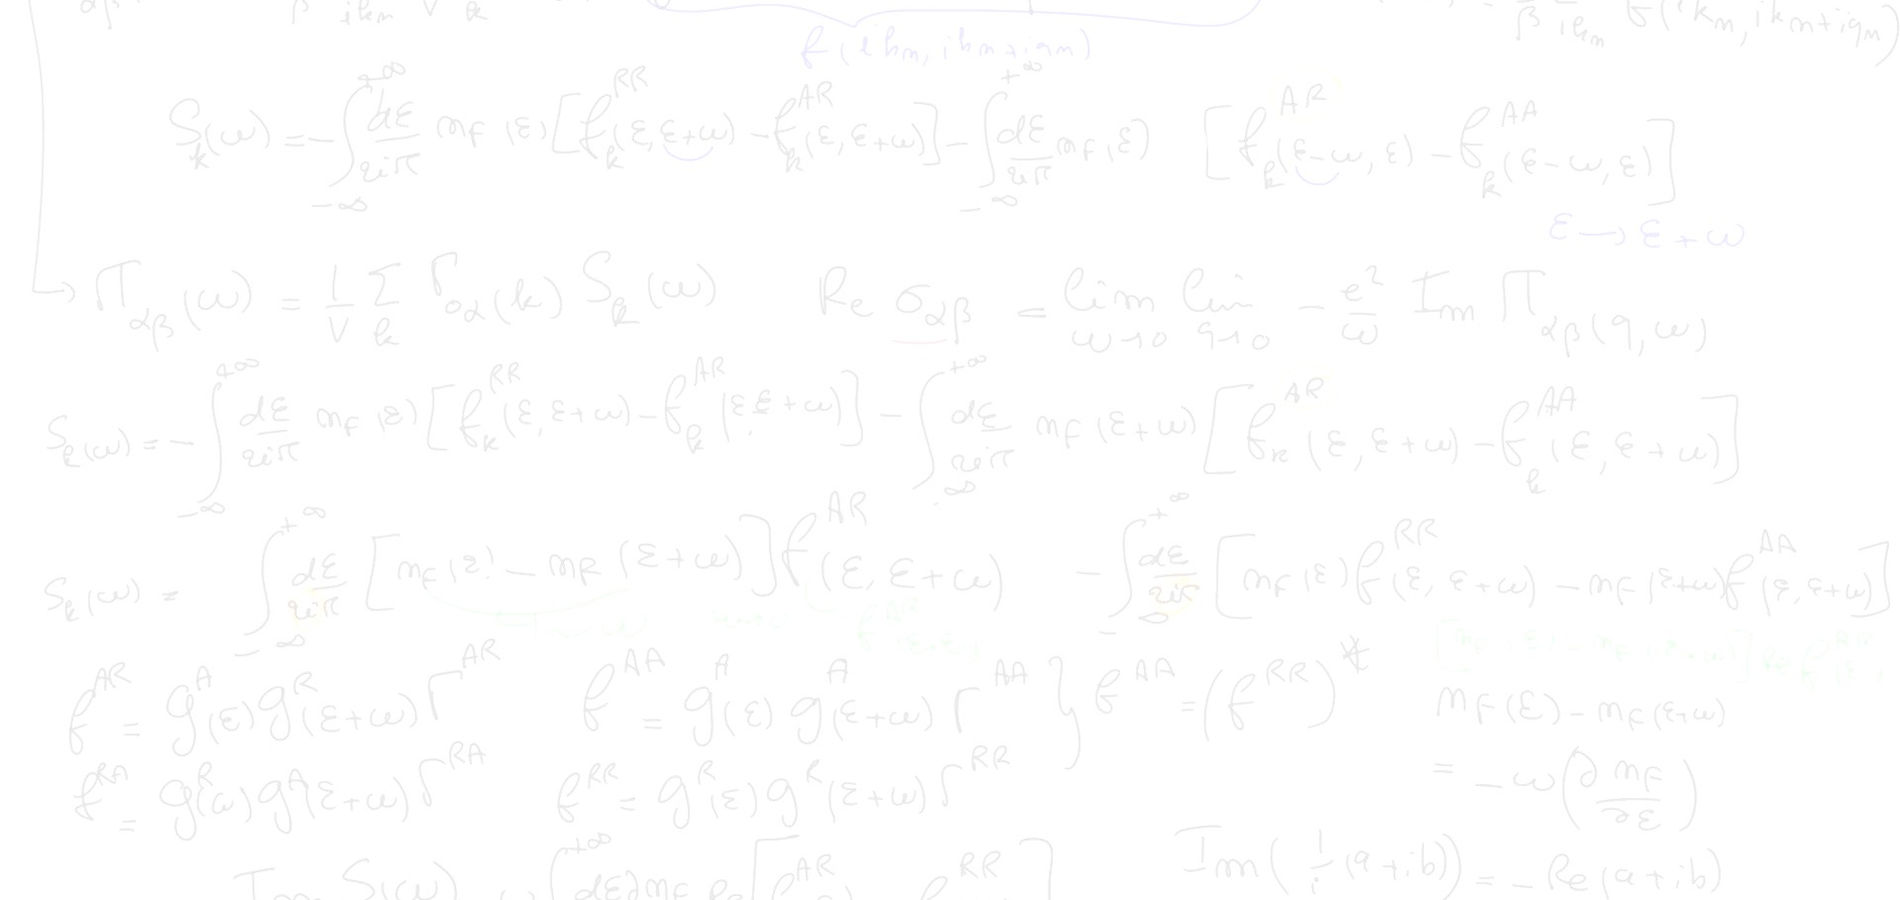 αβ β ik_n V k β ik_n f(ik_n, ik_n+iq_n)
f(ik_n, ik_n+iq_n)
S_k(ω) = - ∫_{-∞}^{+∞} dε/2iπ n_F(ε) [f_k^{RR}(ε, ε+ω) - f_k^{AR}(ε, ε+ω)] - ∫_{-∞}^{+∞} dε/2iπ n_F(ε) [f_k^{AR}(ε-ω, ε) - f_k^{AA}(ε-ω, ε)]
ε → ε+ω
→ Π_{αβ}(ω) = 1/V Σ_k Γ_{0α}(k) S_k(ω) Re σ_{αβ} = lim_{ω→0} lim_{q→0} - e²/ω Im Π_{αβ}(q, ω)
S_k(ω) = - ∫_{-∞}^{+∞} dε/2iπ n_F(ε) [f_k^{RR}(ε, ε+ω) - f_k^{AR}(ε, ε+ω)] - ∫_{-∞}^{+∞} dε/2iπ n_F(ε+ω) [f_k^{AR}(ε, ε+ω) - f_k^{AA}(ε, ε+ω)]
S_k(ω) = ∫_{-∞}^{+∞} dε/2iπ [n_F(ε) - n_F(ε+ω)] f^{AR}(ε, ε+ω) - ∫_{-∞}^{+∞} dε/2iπ [n_F(ε) f^{RR}(ε, ε+ω) - n_F(ε+ω) f^{AA}(ε, ε+ω)]
f^{AR} = g^A(ε) g^R(ε+ω) Γ^{AR} f^{AA} = g^A(ε) g^A(ε+ω) Γ^{AA} } f^{AA} = (f^{RR})* n_F(ε) - n_F(ε+ω)
f^{RA} = g^R(ω) g^A(ε+ω) Γ^{RA} f^{RR} = g^R(ε) g^R(ε+ω) Γ^{RR} = -ω (∂n_F/∂ε)
Im S(ω) ∫^{+∞} dε ∂n_F Re [f^{AR} f^{RR}] Im(1/i (a+ib)) = - Re(a+ib)